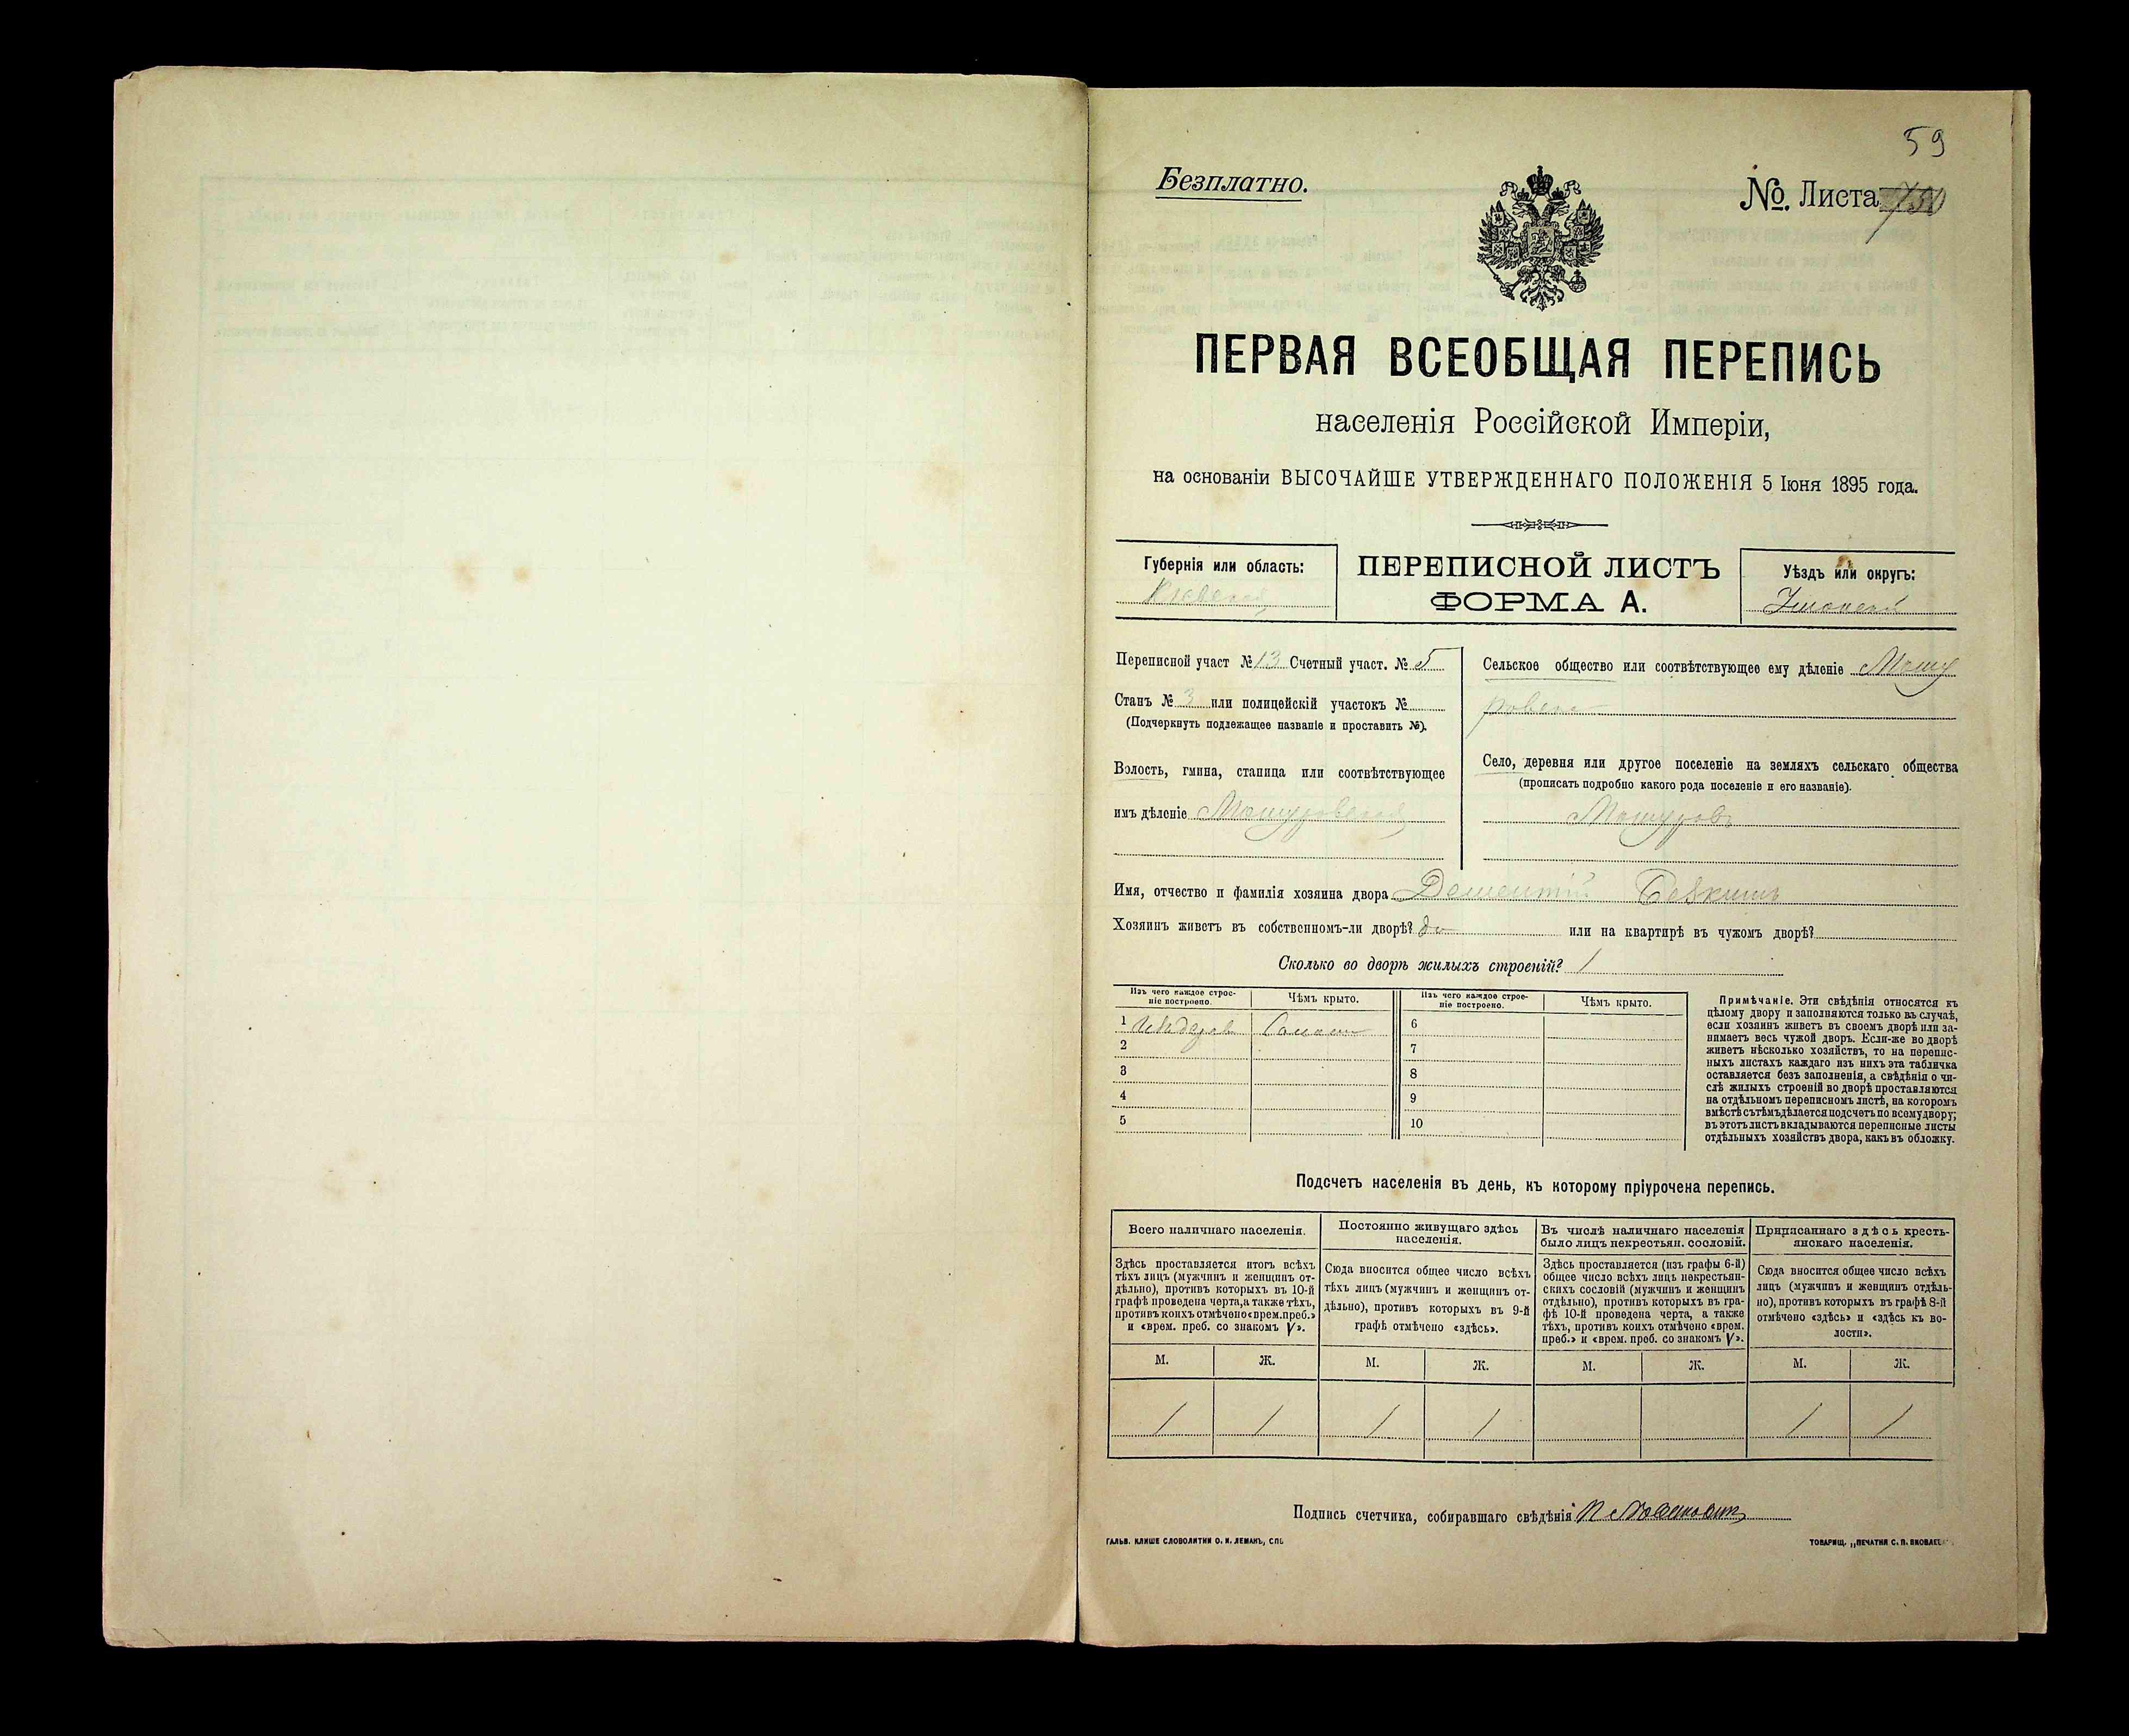 59
Безплатно.
№. Листа
ПЕРВАЯ ВСЕОБЩАЯ ПЕРЕПИСЬ
населенія Россійской Имперіи,
на основаніи ВЫСОЧАЙШЕ УТВЕРЖДЕННАГО ПОЛОЖЕНІЯ 5 Іюня 1895 года.
Губернія или область:
Кіевская
ПЕРЕПИСНОЙ ЛИСТЪ
ФОРМА А.
Уѣздъ или округъ:
Уманскій
Переписной участ №13 Счетный участ. № 5
Станъ № 3 или полицейскій участокъ №
(Подчеркнуть подлежащее названіе и проставить №).
Волость, гмина, станица или соотвѣтствующее
имъ дѣленіе Машуровская
Сельское общество или соотвѣтствующее ему дѣленіе Машу
ровское
Село, деревня или другое поселеніе на земляхъ сельскаго общества
(прописать подробно какого рода поселеніе и его названіе).
Машуровъ
Имя, отчество и фамилія хозяина двора Дементій
Хозяинъ живетъ въ собственномъ-ли дворѣ? да или на квартирѣ въ чужомъ дворѣ?
Сколько во дворѣ жилыхъ строеній? 1
Изъ чего каждое строе-
ніе построено.
Чѣмъ крыто.
Изъ чего каждое строе-
ніе построено.
Чѣмъ крыто.
1 Соломою 6
2 7
3 8
4 9
5 10
Примѣчаніе. Эти свѣдѣнія относятся къ
цѣлому двору и заполняются только въ случаѣ,
если хозяинъ живетъ въ своемъ дворѣ или за-
нимаетъ весь чужой дворъ. Если-же во дворѣ
живетъ нѣсколько хозяйствъ, то на перепис-
ныхъ листахъ каждаго изъ нихъ эта табличка
оставляется безъ заполненія, а свѣдѣнія о чи-
слѣ жилыхъ строеній во дворѣ проставляются
на отдѣльномъ переписномъ листѣ, на которомъ
вмѣстѣ съ тѣмъ дѣлается подсчетъ по всему двору;
въ этотъ листъ вкладываются переписные листы
отдѣльныхъ хозяйствъ двора, какъ въ обложку.
Подсчетъ населенія въ день, къ которому пріурочена перепись.
Всего наличнаго населенія.
Здѣсь проставляется итогъ всѣхъ
тѣхъ лицъ (мужчинъ и женщинъ от-
дѣльно), противъ которыхъ въ 10-й
графѣ проведена черта, а также тѣхъ,
противъ коихъ отмѣчено «врем. преб.»
и «врем. преб. со знакомъ V».
Постоянно живущаго здѣсь
населенія.
Сюда вносится общее число всѣхъ
тѣхъ лицъ (мужчинъ и женщинъ от-
дѣльно), противъ которыхъ въ 9-й
графѣ отмѣчено «здѣсь».
Въ числѣ наличнаго населенія
было лицъ некрестьян. сословій.
Здѣсь проставляется (изъ графы 6-й)
общее число всѣхъ лицъ некрестьян-
скихъ сословій (мужчинъ и женщинъ
отдѣльно), противъ которыхъ въ гра-
фѣ 10-й проведена черта, а также
тѣхъ, противъ коихъ отмѣчено «врем.
преб.» и «врем. преб. со знакомъ V».
Приписаннаго здѣсь кресть-
янскаго населенія.
Сюда вносится общее число всѣхъ
лицъ (мужчинъ и женщинъ отдѣль-
но), противъ которыхъ въ графѣ 8-й
отмѣчено «здѣсь» и «здѣсь къ во-
лости».
М. Ж. М. Ж. М. Ж. М. Ж.
1 1 1 1 1 1
Подпись счетчика, собиравшаго свѣдѣнія
ГАЛЬВ. КЛИШЕ СЛОВОЛИТНИ О. И. ЛЕМАНЪ, СПБ
ТОВАРИЩ. „ПЕЧАТНЯ С. П. ЯКОВЛЕВА"